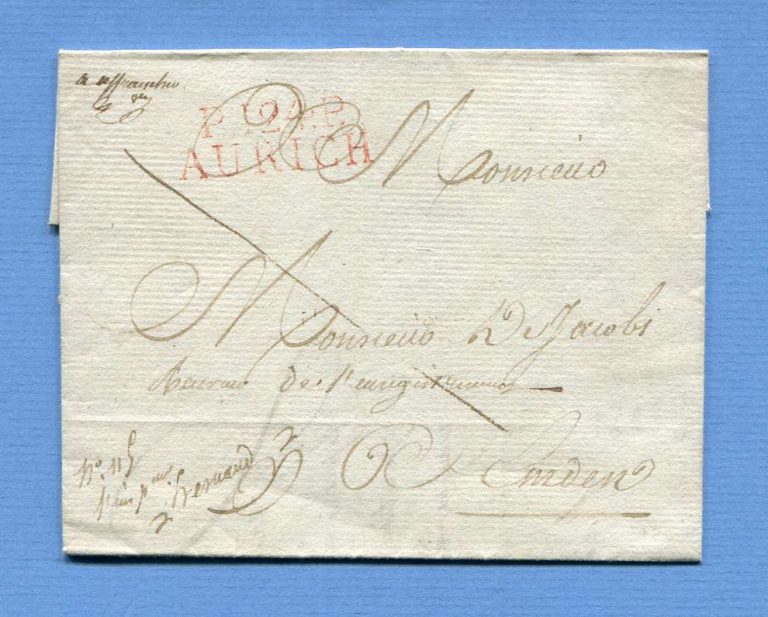 a affranchir
P.124.P.
AURICH
Monsieur
Monsieur De Jacobi
Bureau de l'enregistrement
A Emden
No 115
Bernard